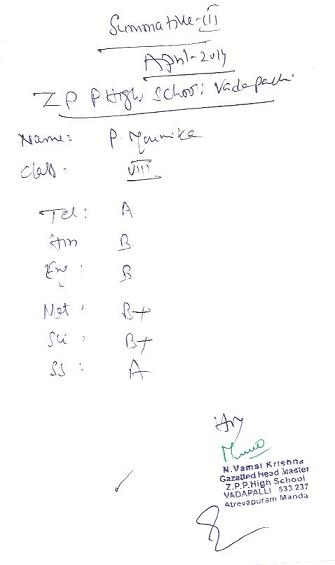 Summative-III
April-2014
Z P P High School: Vadapalli
Name: P. Mounika
Class: VIII
Tel: A
Hin B
Eng: B
Mat: B+
Sci: B+
SS: A
N.Vamsi Krishna
Gazetted Head Master
Z.P.P.High School
VADAPALLI 533 237
Atreyapuram Manda